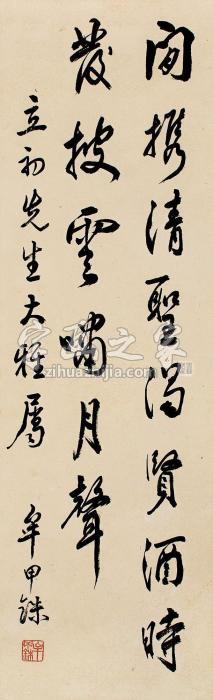 閒携清聖濁賢酒時
發披雲嘯月聲
立初先生大雅屬
牟甲銖
字画之家
zihuazhijia.com